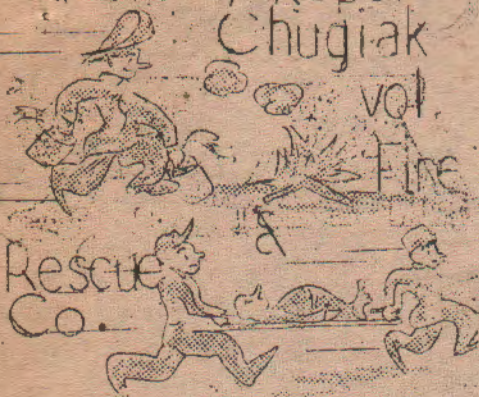 Chugiak
vol.
Fire
&
Rescue
Co.